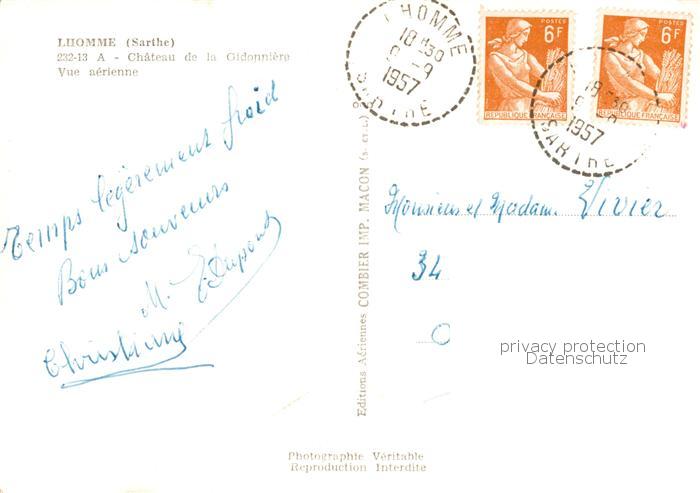 LHOMME (Sarthe)
232-13 A - Château de la Gidonnière
Vue aérienne
Temps légèrement froid
Bons souvenirs
M. E. Dupont
Christiane
Editions Aériennes COMBIER IMP. MACON
LHOMME
18 H30
9-9
1957
SARTHE
POSTES
6F
REPUBLIQUE FRANÇAISE
POSTES
6F
REPUBLIQUE FRANÇAISE
18 H30
1957
SARTHE
Monsieur et Madame Vivier
34
privacy protection
Datenschutz
Photographie Véritable
Reproduction Interdite